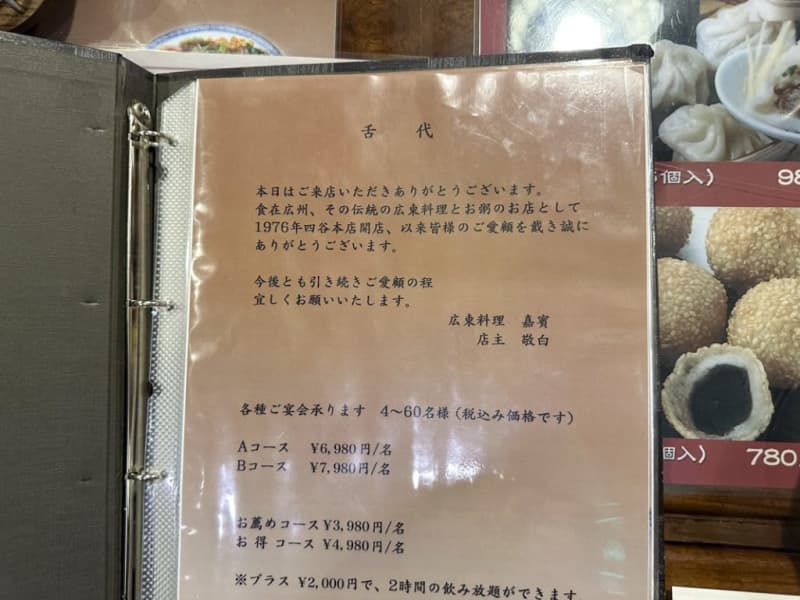 舌 代
本日はご来店いただきありがとうございます。
食在広州、その伝統の広東料理とお粥のお店として
1976年四谷本店開店、以来皆様のご愛顧を戴き誠に
ありがとうございます。
今後とも引き続きご愛顧の程
宜しくお願いいたします。
広東料理 嘉賓
店主 敬白
各種ご宴会承ります 4～60名様(税込み価格です)
Aコース ¥6,980円/名
Bコース ¥7,980円/名
お薦めコース ¥3,980円/名
お得 コース ¥4,980円/名
※プラス ¥2,000円で、2時間の飲み放題ができます。
個入) 98
個入) 780